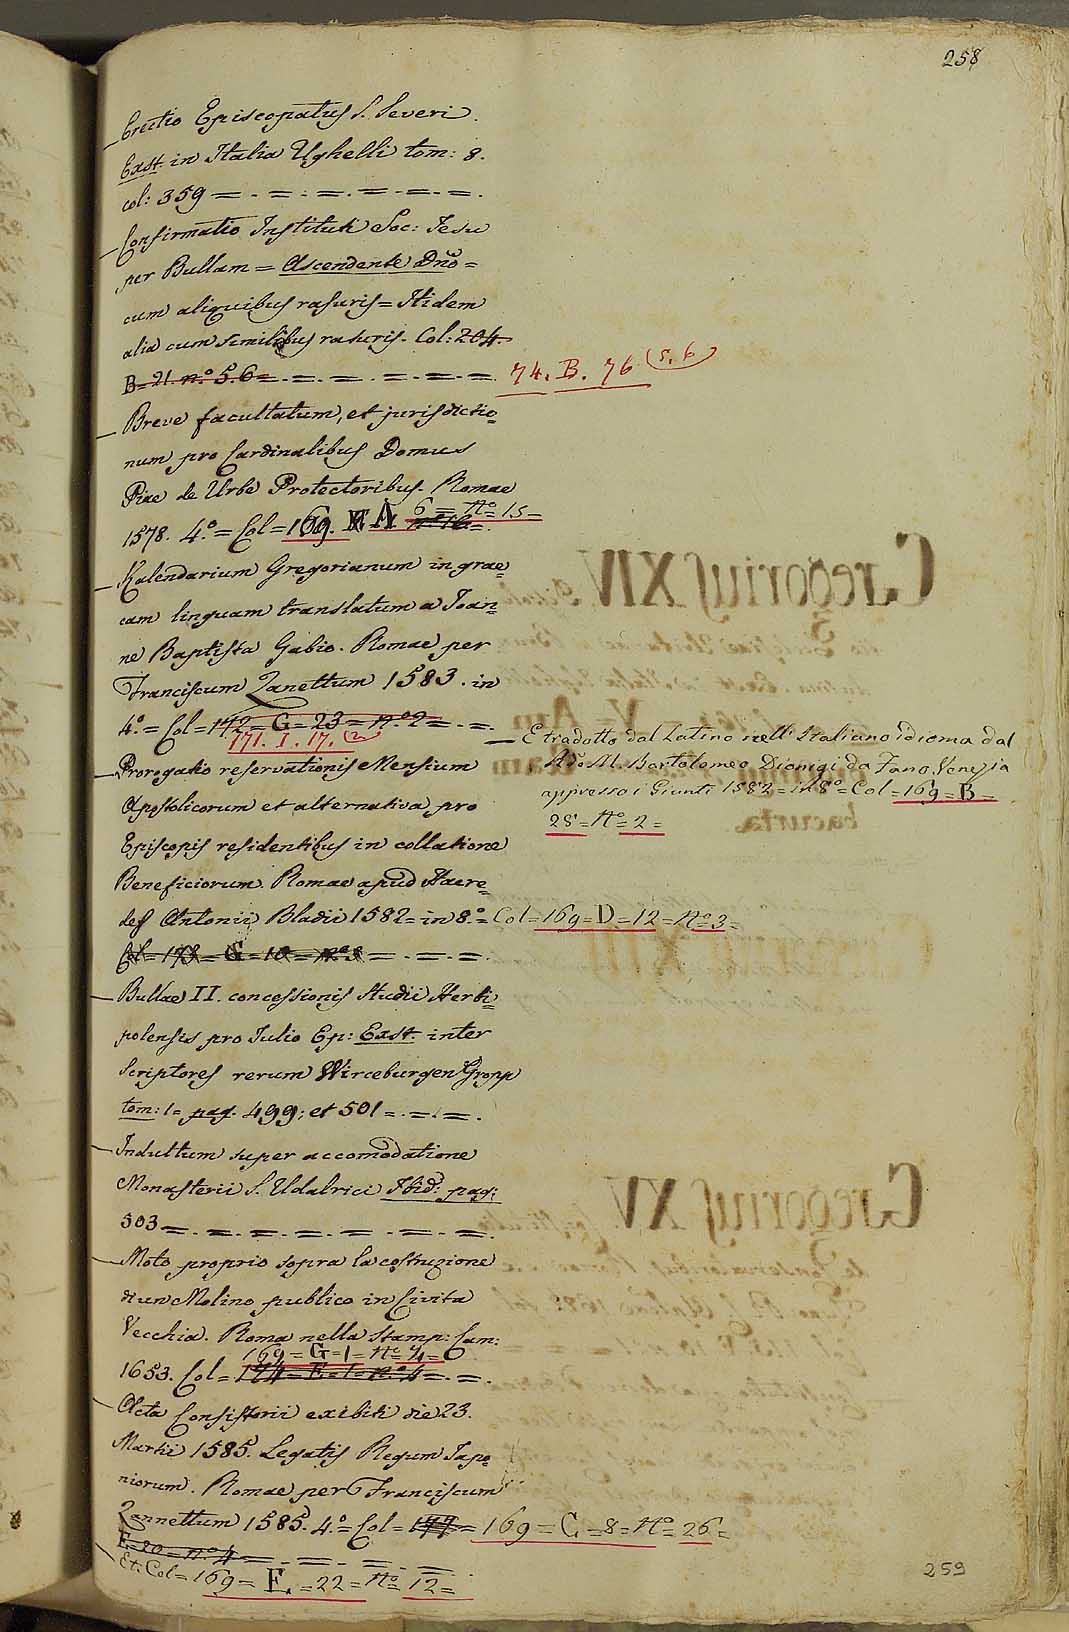 258
Erectio Episcopatus S. Severi.
Exst. in Italia Ughelli tom: 8.
col: 359 = . = . = . = . = . = .
Confirmatio Instituti Soc: Jesu
per Bullam = Ascendente Dño =
cum aliquibus rasuris = Itidem
alia cum similibus rasuris. Col: 204.
B = 21. n.º 5.6 = . = . = . = . = . = . 74. B. 76 (5. 6)
Breve facultatum, et jurisdictio=
num pro Cardinalibus Domus
Piae de Urbe Protectoribus. Romae
1578. 4.º = Col = 169. A. 6 = Nº = 15 =
Kalendarium Gregorianum in grae=
cam linguam translatum a Joan=
ne Baptista Gabio. Romae per
Franciscum Zanettum 1583. in
4.º = Col = 172 = G = 23 = n.º 2 = . = .
171. I. 17. (2)
E tradotto dal Latino nell' Italiano idioma dal
R.do M. Bartolomeo Dionigi da Fano Venezia
appresso i Giunti 1582 = in 8º = Col = 169 = B =
28 = Nº = 2 =
Prorogatio reservationis Mensium
Apostolicorum et alternativa pro
Episcopis residentibus in collatione
Beneficiorum. Romae apud Haere=
des Antonii Bladii 1582 = in 8.º = Col = 169 = D = 12 = Nº = 3 =
Col = 173 = G = 10 = n.º 3 = . = . = .
Bullae II. concessionis Studii Herbi=
polensis pro Julio Ep: Exst. inter
Scriptores rerum Wirceburgen Gropp
tom: 1 = pag. 499; et 501 = . = . = .
Indultum super accomodatione
Monasterii S. Udalrici Ibid: pag:
503 = . = . = . = . = . = . = .
Moto proprio sopra la costruzione
di un Molino publico in Civita
Vecchia. Roma nella Stamp: Cam:
169 = G = 1 = Nº 4 =
1653. Col = 174 = E = 1 = n.º 4 = . = .
Acta Consistorii exibiti die 23.
Martii 1585. Legatis Regum Japo=
niorum. Romae per Franciscum
Zannettum 1585. 4.º = Col = 177 = 169 = C = 8 = Nº = 26 =
E = 20 = n.º 4 = . = . = . = .
Et. Col = 169 = E. = 22 = Nº = 12 =
259